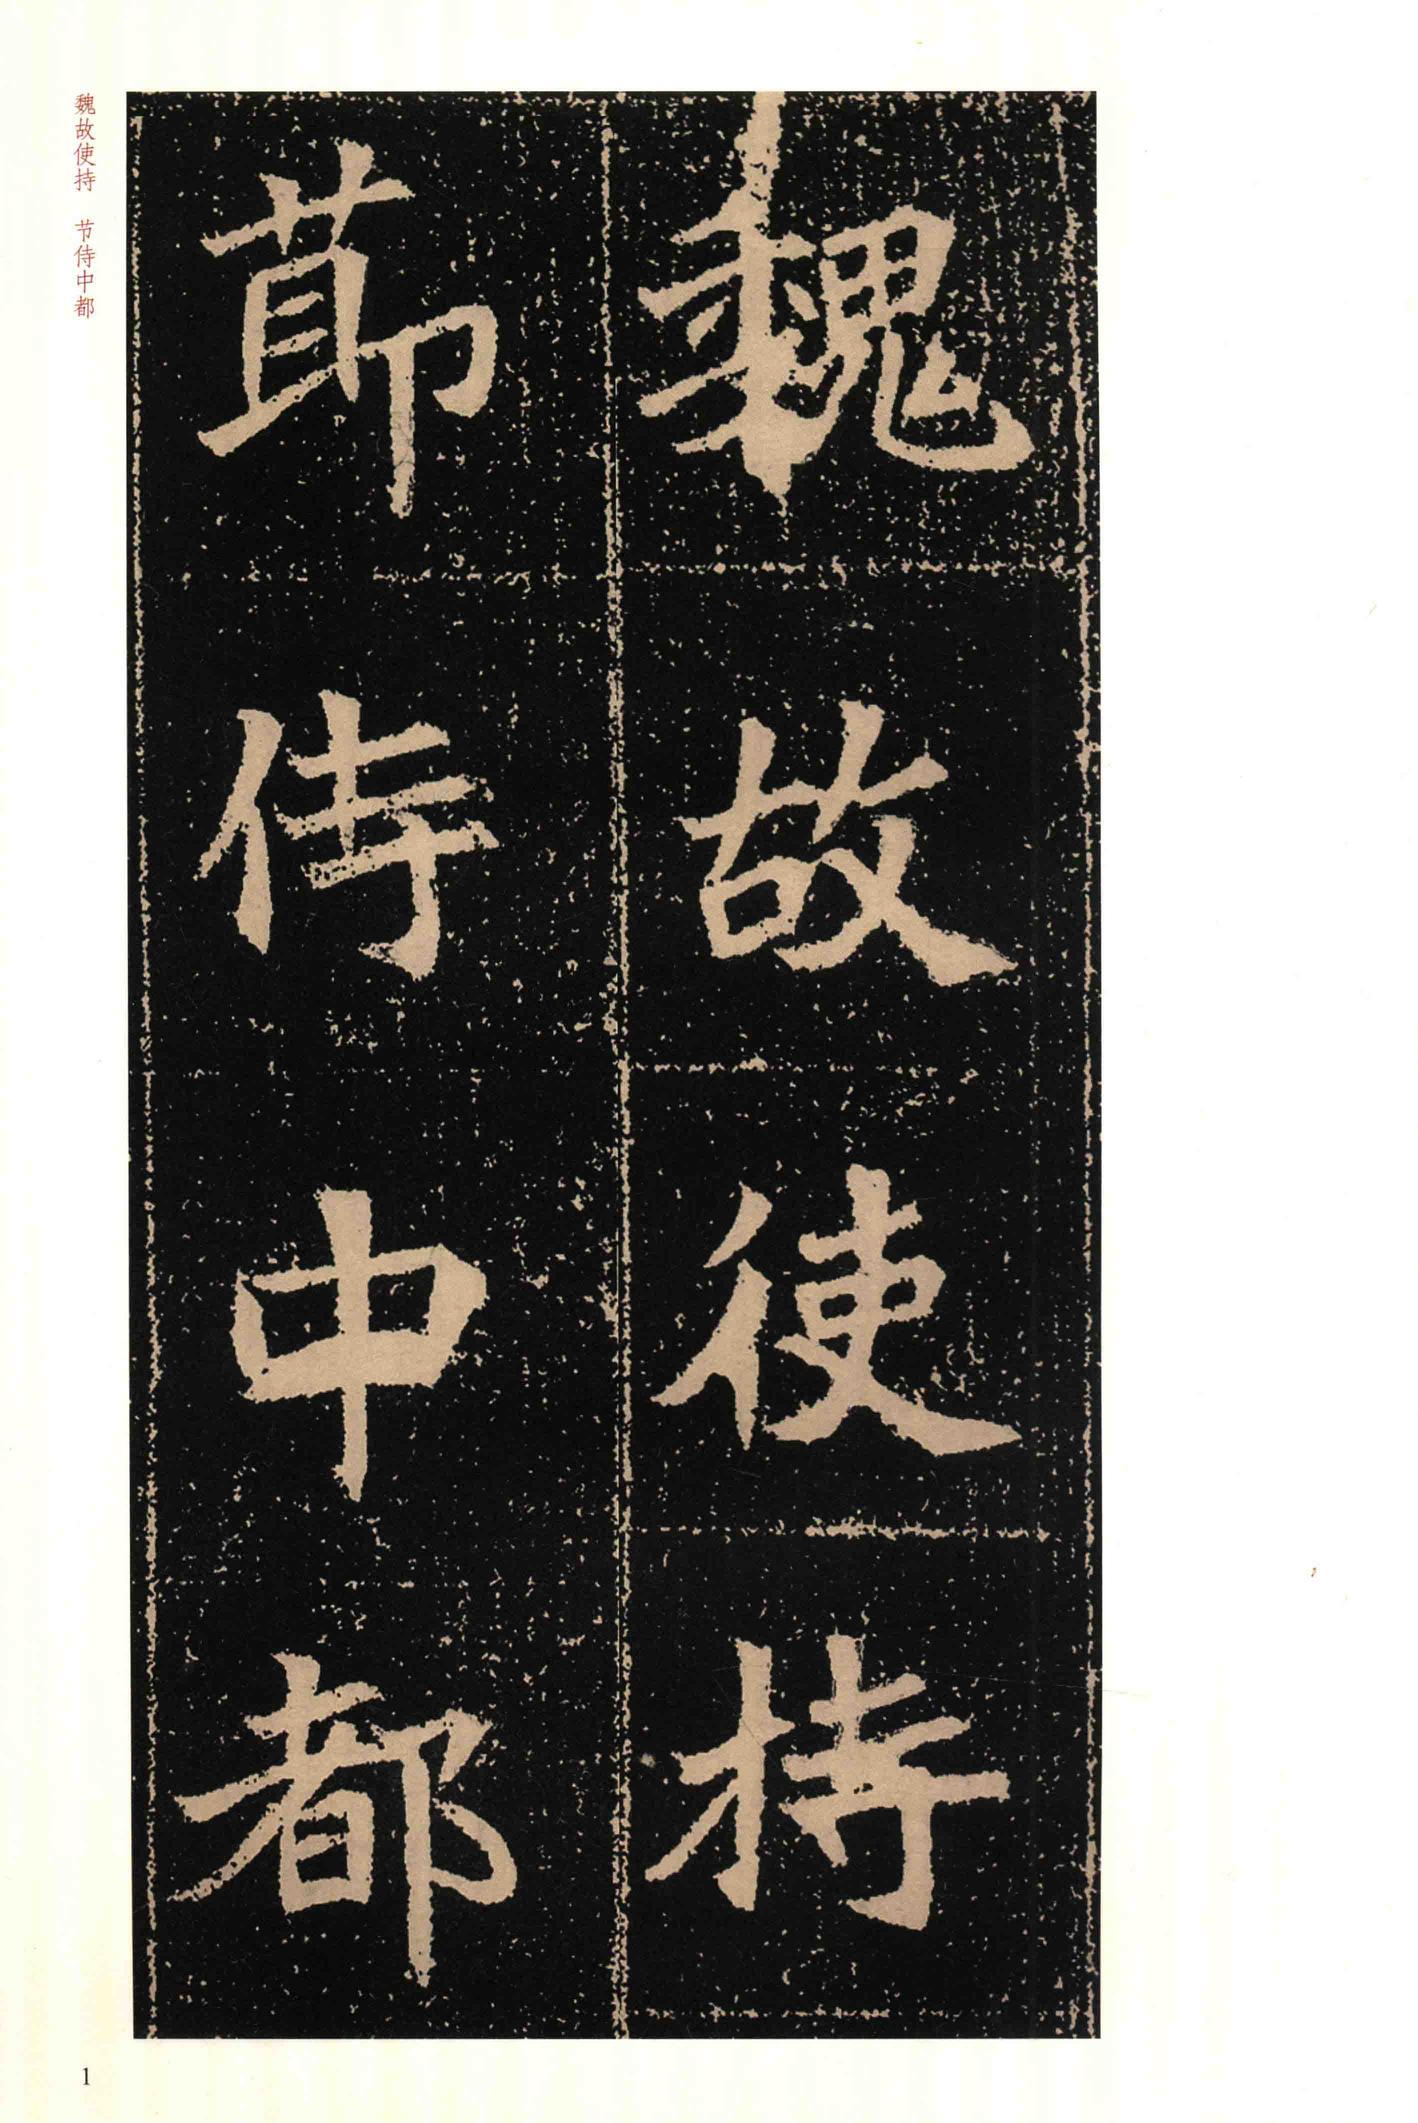 魏故使持
莭侍中都
魏故使持 节侍中都
1